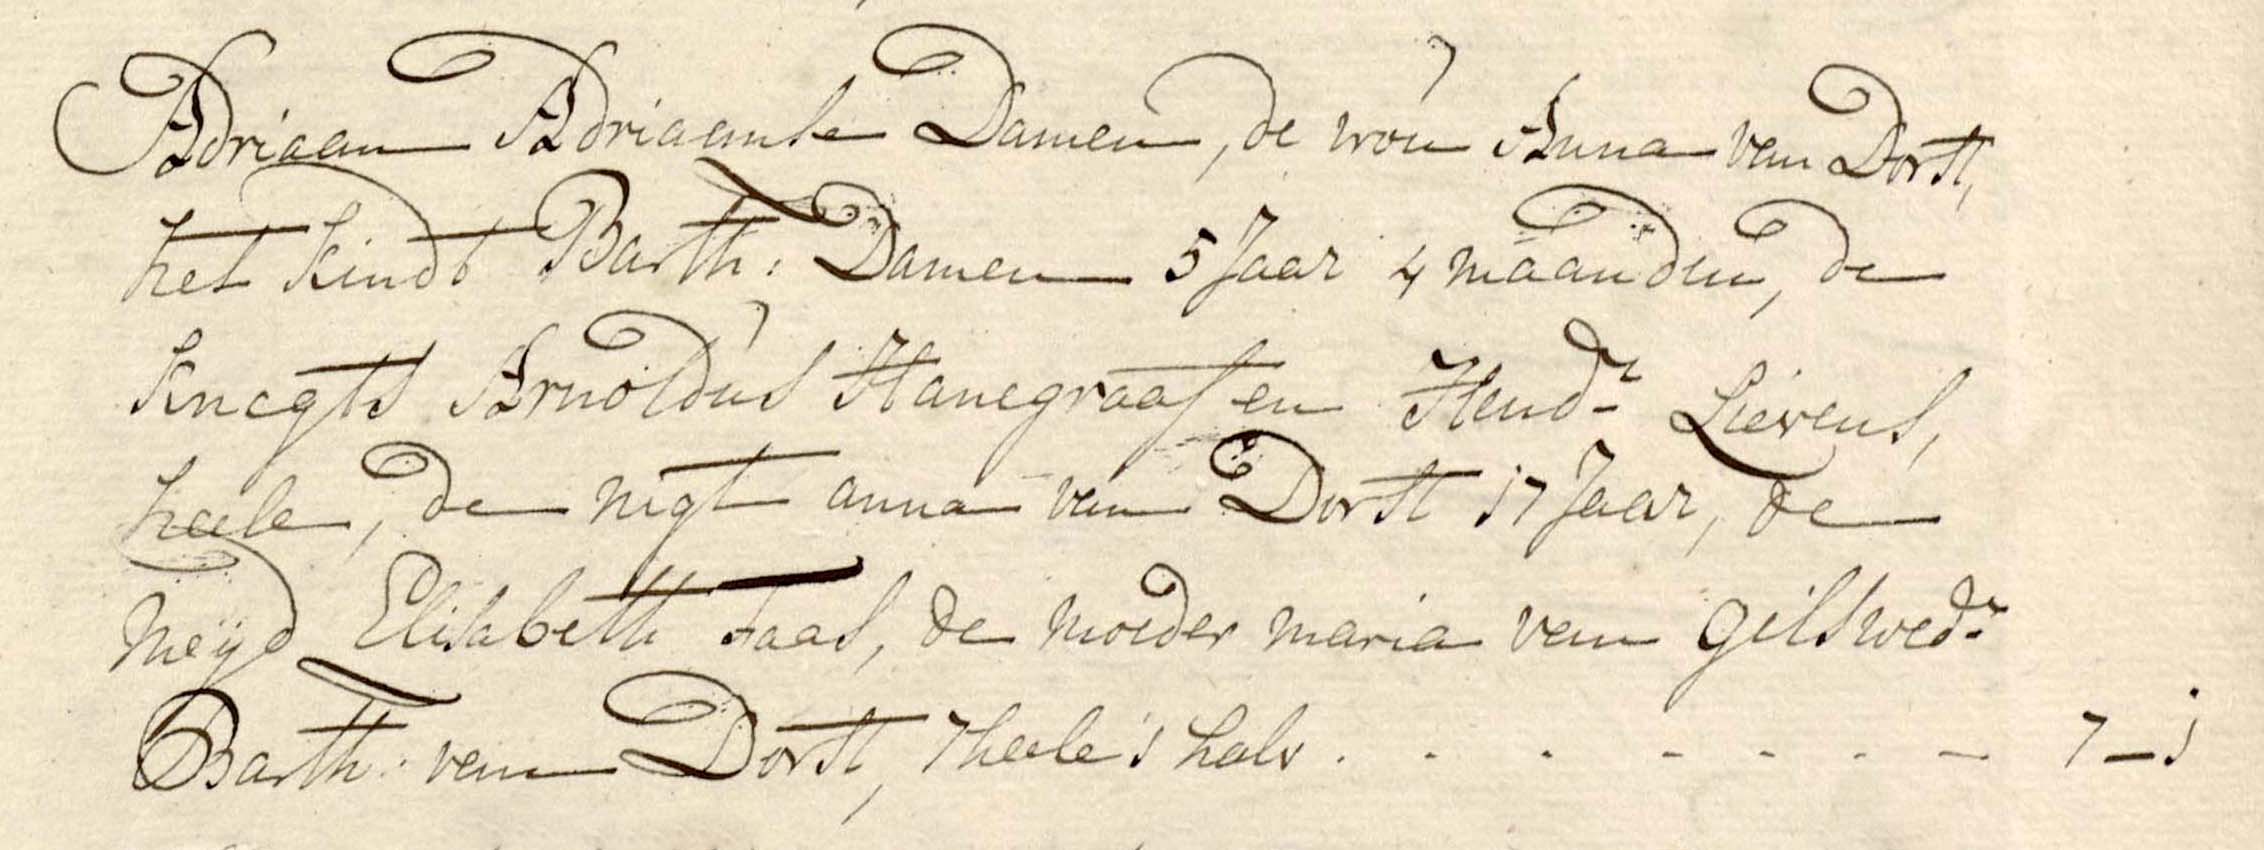 Adriaan Adriaanse Damen, de vrou Anna van Dorst,
het kindt Barth: Damen 5 Jaar 4 maanden, de
knegts Arnoldus Hanegraaf en Hendr. Lievens,
heele, de nigt anna van Dorst 17 Jaar, de
meÿd Elisabeth Faas, de moeder maria van Gils wedr.
Barth: van Dorst, 7 heele 1 halv . . . - - - - 7 - 1